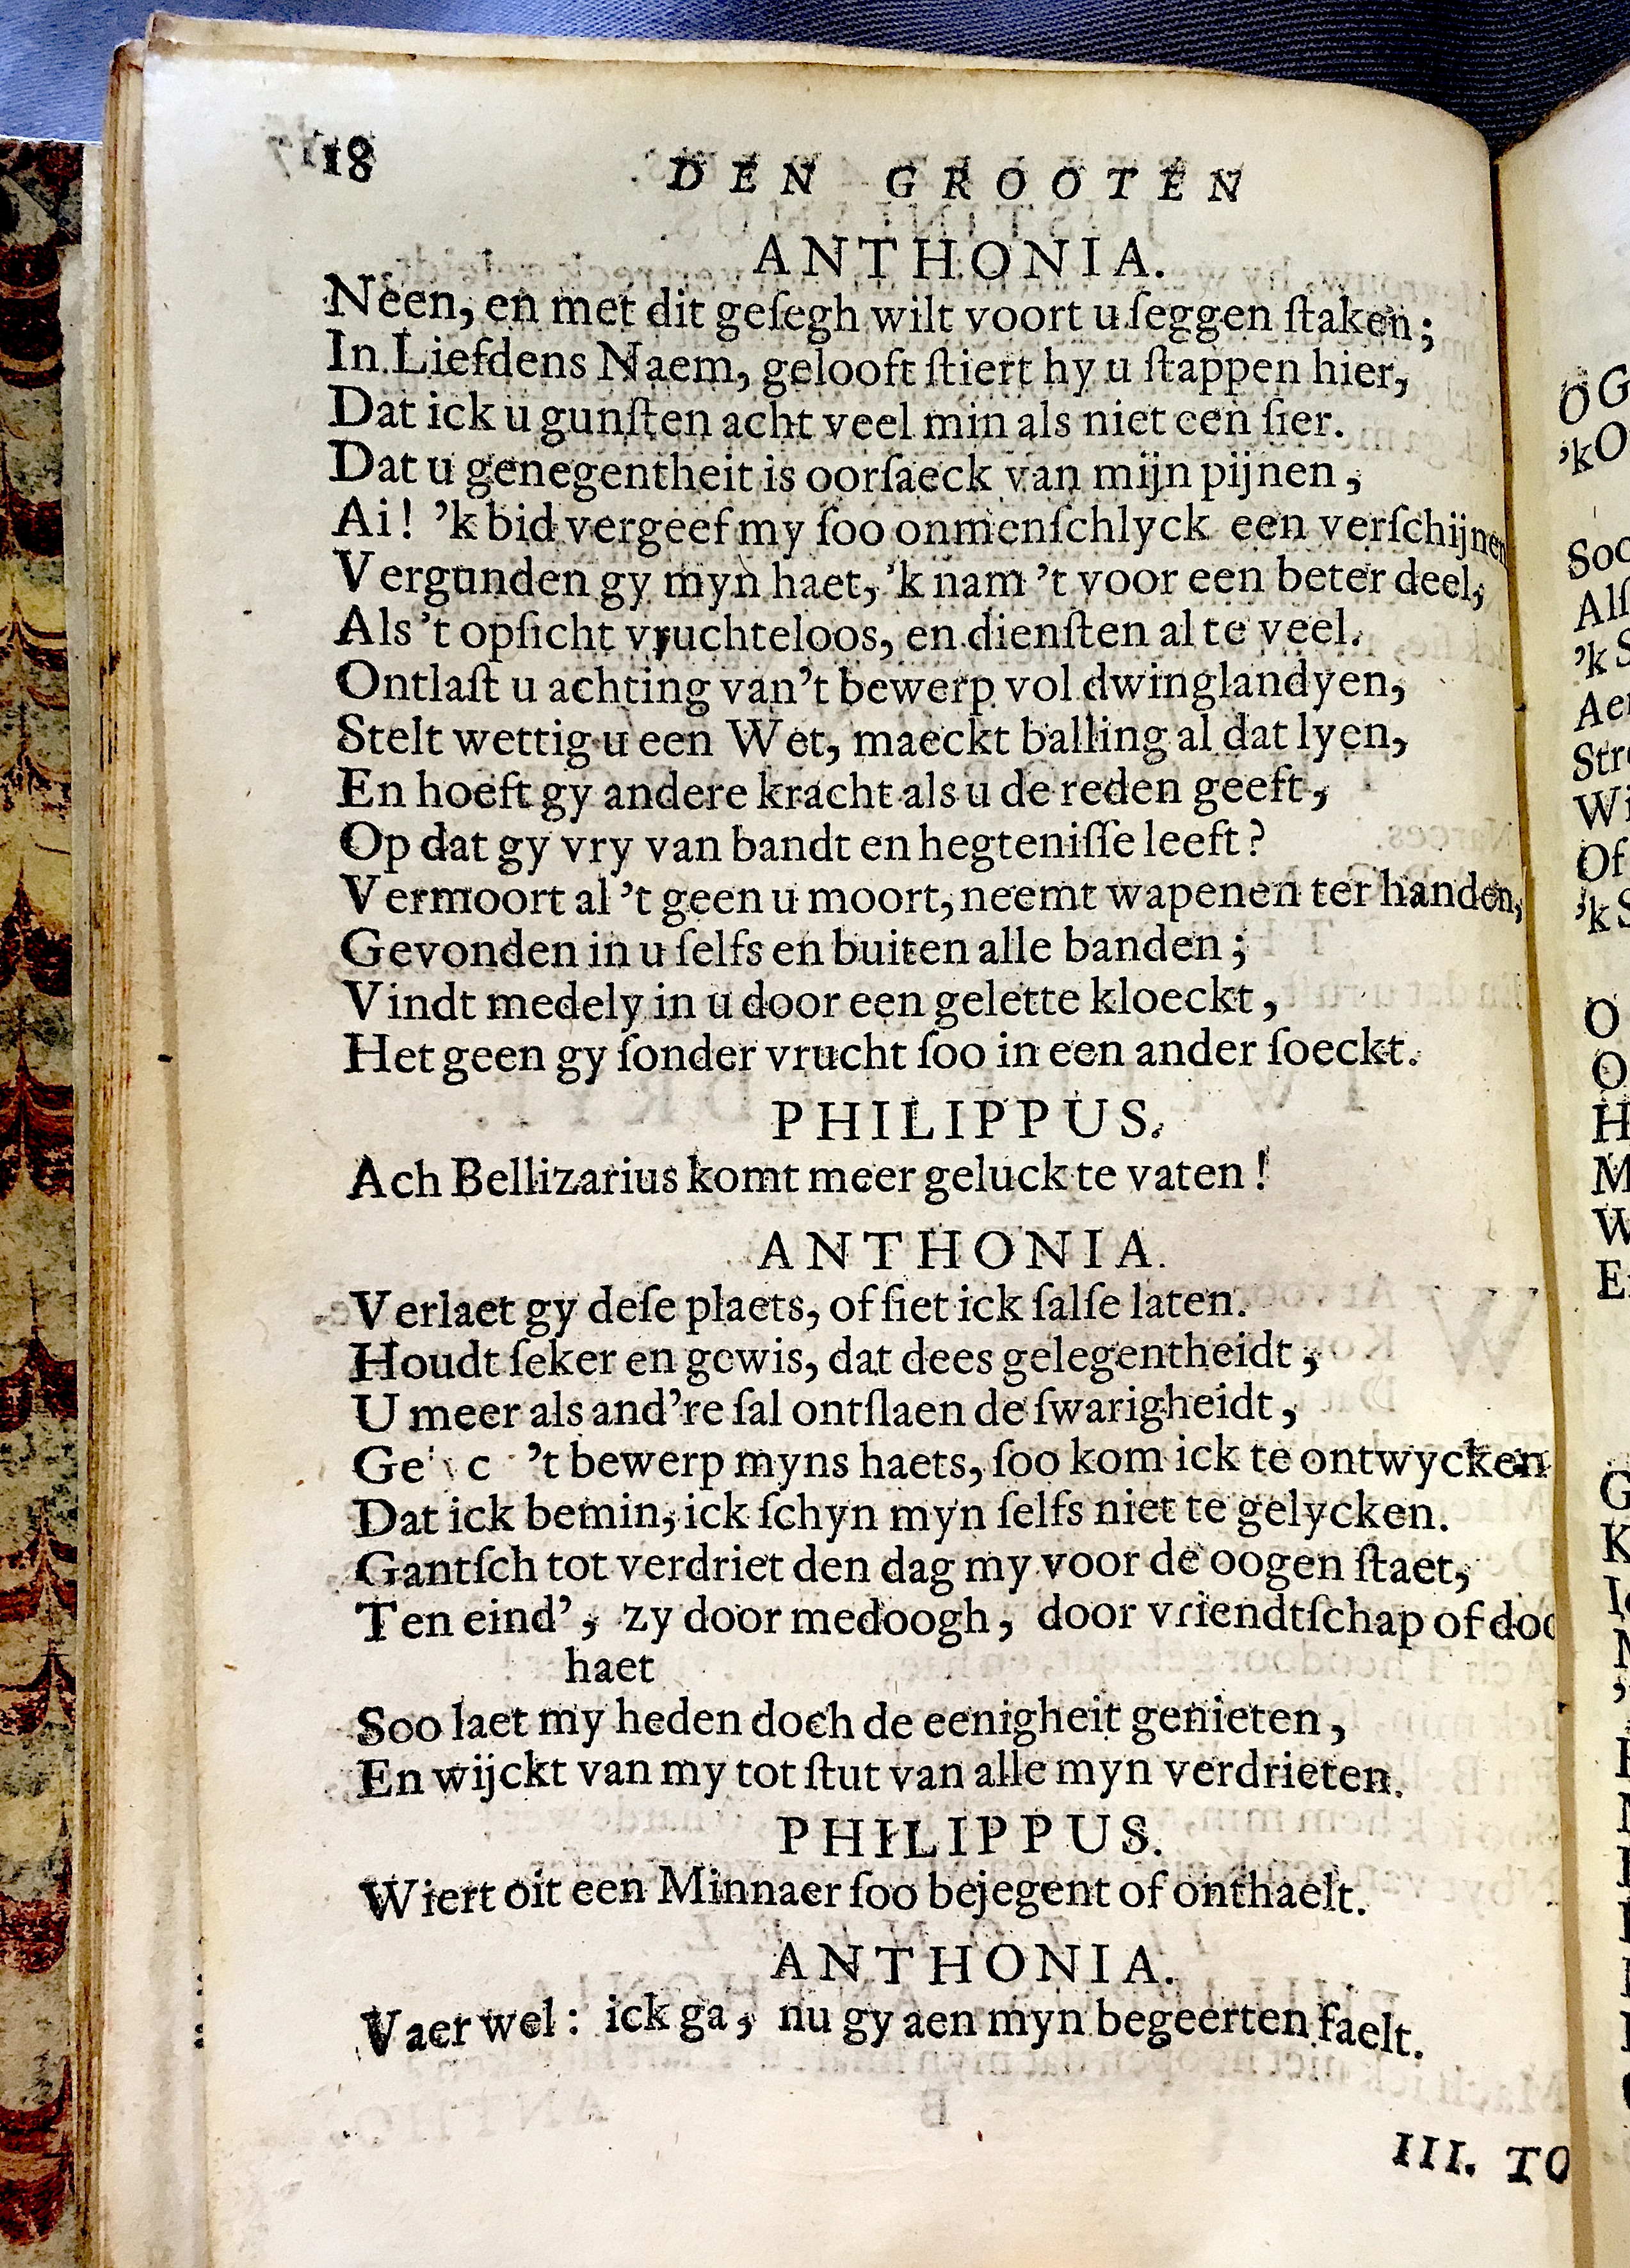 18 DEN GROOTEN
ANTHONIA.
Neen, en met dit geſegh wilt voort u ſeggen ſtaken;
In Liefdens Naem, gelooft ſtiert hy u ſtappen hier,
Dat ick u gunſten acht veel min als niet een ſier.
Dat u genegentheit is oorſaeck van mijn pijnen,
Ai! 'k bid vergeef my ſoo onmenſchlyck een verſchijnen
Vergunden gy myn haet, 'k nam 't voor een beter deel,
Als 't opſicht vruchteloos, en dienſten al te veel.
Ontlaſt u achting van 't bewerp vol dwinglandyen,
Stelt wettig u een Wet, maeckt balling al dat lyen,
En hoeft gy andere kracht als u de reden geeft,
Op dat gy vry van bandt en hegteniſſe leeft?
Vermoort al 't geen u moort, neemt wapenen ter handen,
Gevonden in u ſelfs en buiten alle banden;
Vindt medely in u door een gelette kloeckt,
Het geen gy ſonder vrucht ſoo in een ander ſoeckt.
PHILIPPUS.
Ach Bellizarius komt meer geluck te vaten!
ANTHONIA.
Verlaet gy deſe plaets, of ſiet ick ſalſe laten.
Houdt ſeker en gewis, dat dees gelegentheidt,
U meer als and're ſal ontſlaen de ſwarigheidt,
't bewerp myns haets, ſoo kom ick te ontwycken
Dat ick bemin, ick ſchyn myn ſelfs niet te gelycken.
Gantſch tot verdriet den dag my voor de oogen ſtaet,
Ten eind', zy door medoogh, door vriendtſchap of doo
haet
Soo laet my heden doch de eenigheit genieten,
En wijckt van my tot ſtut van alle myn verdrieten.
PHILIPPUS.
Wiert oit een Minnaer ſoo bejegent of onthaelt.
ANTHONIA.
Vaer wel: ick ga, nu gy aen myn begeerten faelt.
III. TO
O G
'k O
Soo
Alſ
'k S
Aen
Stre
Wi
Of
'k S
O
O
H
M
W
En
G
K